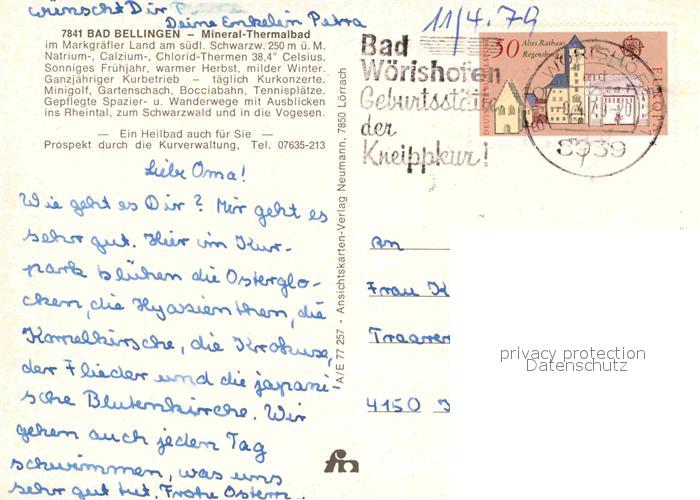 wünscht Dir
Deine Enkelin Petra
11/4.79
7841 BAD BELLINGEN – Mineral-Thermalbad
im Markgräfler Land am südl. Schwarzw. 250 m ü. M.
Natrium-, Calzium-, Chlorid-Thermen 38,4° Celsius.
Sonniges Frühjahr, warmer Herbst, milder Winter.
Ganzjähriger Kurbetrieb – täglich Kurkonzerte.
Minigolf, Gartenschach, Bocciabahn, Tennisplätze.
Gepflegte Spazier- u. Wanderwege mit Ausblicken
ins Rheintal, zum Schwarzwald und in die Vogesen.
— Ein Heilbad auch für Sie —
Prospekt durch die Kurverwaltung, Tel. 07635-213
Liebe Oma!
Wie geht es Dir? Mir geht es
sehr gut. Hier im Kur-
park blühen die Osterglo-
cken, die Hyasienthen, die
Kornelkirsche, die Krokuse,
der Flieder und die japani-
sche Blutenkirche. Wir
gehen auch jeden Tag
schwimmen, was uns
sehr gut tut. Frohe Ostern
A/E 77 257 - Ansichtskarten-Verlag Neumann, 7850 Lörrach
Bad
Wörishofen
Geburtsstätte
der
Kneippkur!
50 Altes Rathaus
Regensburg
EUROPA
DEUTSCHE BUNDESPOST
BAD WÖRISHOFEN
8939
An
Frau K
4150
privacy protection
Datenschutz